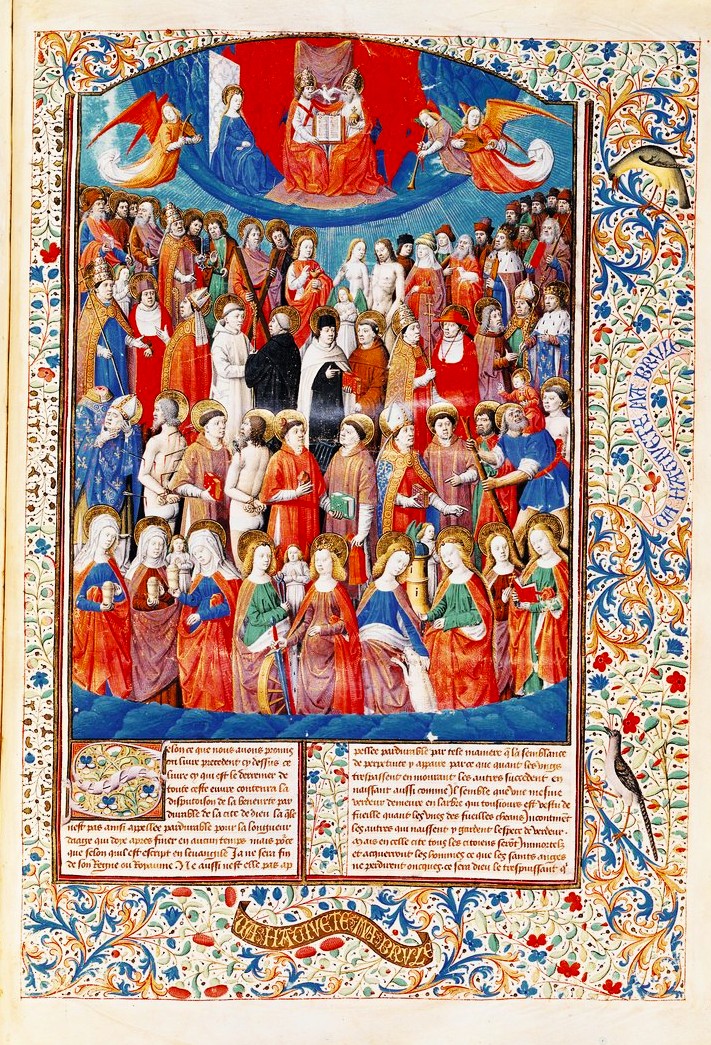 Selon ce que nous auons promis
ou liure precedent cy dessus ce
liure cy qui est le derrenier de
toute ceste euure contenra la
disputoison de la beneurte par
durable de la cite de dieu la q̄le
nest pas ainsi appellee pardurable pour la longueur
daage qui doye apres finer en aucun temps mais pour ce
que selon quil est escript en leuangile Ja ne sera fin
de son Regne ou Royaume Ne aussi nest elle pas ap
pellee pardurable par tele maniere q̄ la semblance
de perpetuite y appaire parce que quant les vngz
trespassent en mourant les autres succedent en
naissant aussi comme Il semble que vne mesme
verdeur demeure en larbre qui tousiours est vestu de
fueille quant les vnes des fueilles cheent
les autres qui naissent y gardent lespece de verdeur
Mais en celle cite tous les citoiens serōt Immortelz
et acquerront les hommes ce que les sains anges
ne perdirent oncques ce fera dieu le trespuissant q̄
VA HATIVETE MA BRVLE
VA HATIVETE MA BRVLE